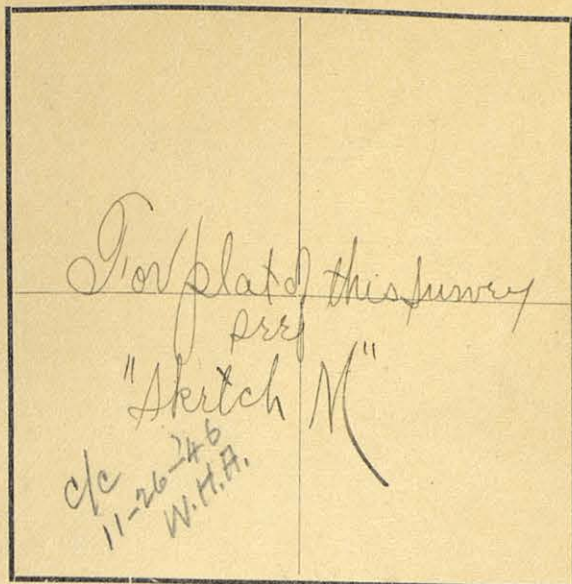 For plat of this survey
see
"Sketch M"
c/c
11-26-46
W.H.A.